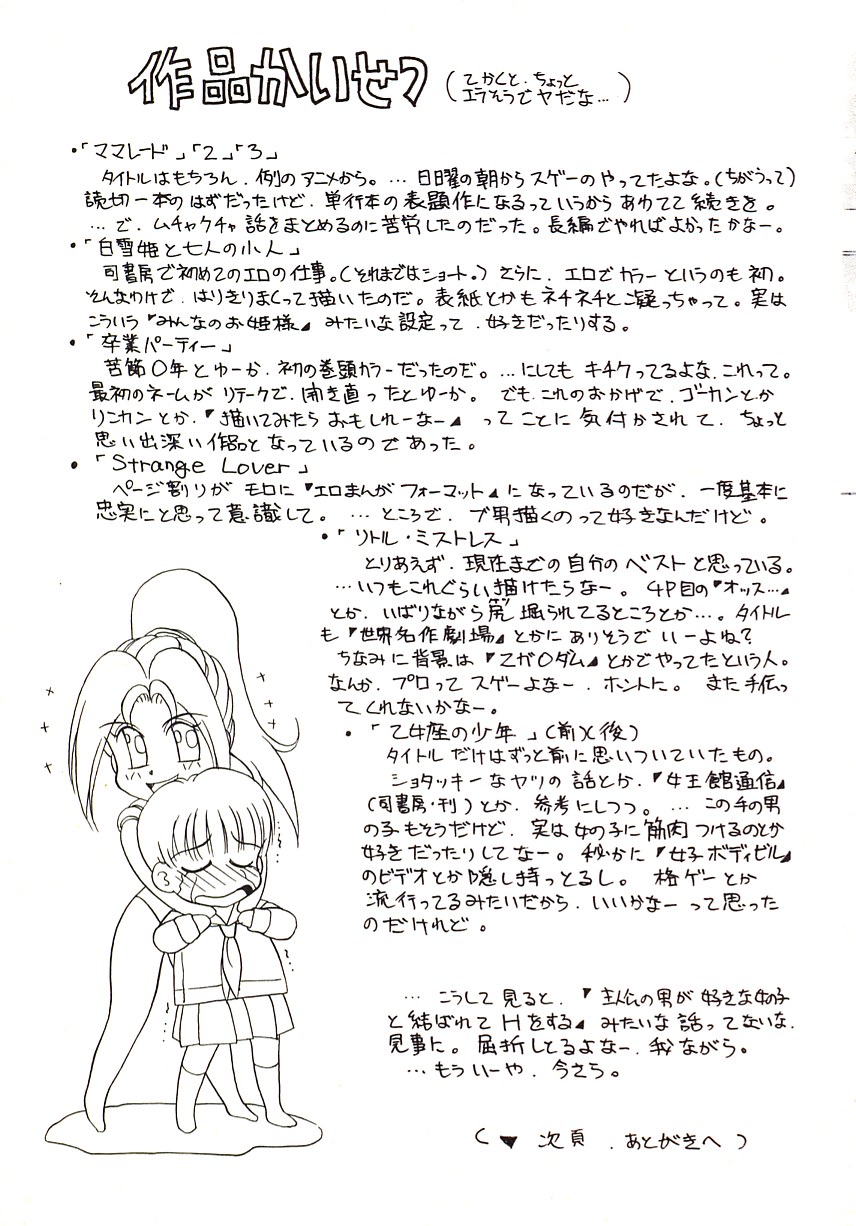 作品かいせつ
(てかくと、ちょっと
エラそうでヤだな…)
・「ママレード」「2」「3」
タイトルはもちろん、例のアニメから。…日曜の朝からスゲーのやってたよな。(ちがうって)
読切一本のはずだったけど、単行本の表題作になるっていうからあわてて続きを。
…で、ムチャクチャ話をまとめるのに苦労したのだった。長編でやればよかったかなー。
・「白雪姫と七人の小人」
司書房で初めてのエロの仕事。(それまではショート。)さらに、エロでカラーというのも初。
そんなわけで、はりきりまくって描いたのだ。表紙とかもネチネチと凝っちゃって。実は
こういう『みんなのお姫様』みたいな設定って、好きだったりする。
・「卒業パーティー」
苦節○年とゆーか、初の巻頭カラーだったのだ。…にしてもキチケってるよな、これって。
最初のネームがリテークで、開き直ったとゆーか。でも、これのおかげで、ゴーカンとか
リンカンとか、『描いてみたらおもしれーなー』ってことに気付かされて、ちょっと
思い出深い作品となっているのであった。
・「Strange Lover」
ページ割りがモロに『エロまんがフォーマット』になっているのだが、一度基本に
忠実にと思って意識して。…ところで、ブ男描くのって好きなんだけど。
・「リトル・ミストレス」
とりあえず、現在までの自分のベストと思っている。
…いつもこれぐらい描けたらなー。4P目の『オッス…』
とか、いばりながら尻掘られてるところとか…。タイトル
も『世界名作劇場』とかにありそうでいーよね?
ちなみに背景は『Zガ○ダム』とかでやってたという人。
なんか、プロってスゲーよなー、ホントに。また手伝っ
てくれないかなー。
・「乙女座の少年」(前)(後)
タイトルだけはずっと前に思いついていたもの。
ショタッキーなヤツの話とか、『女王館通信』
(司書房・刊)とか、参考にしつつ。…この手の男
の子もそうだけど、実は女の子に筋肉つけるのとか
好きだったりしてなー。秘かに『女子ボディビル』
のビデオとか隠し持っとるし。格ゲーとか
流行ってるみたいだから、いいかなーって思った
のだけれど。
…こうして見ると、『主人公の男が好きな女の子
と結ばれてHをする』みたいな話ってないな、
見事に。屈折しとるよなー、我ながら。
…もういーや、今さら。
(▼次頁、あとがきへ)